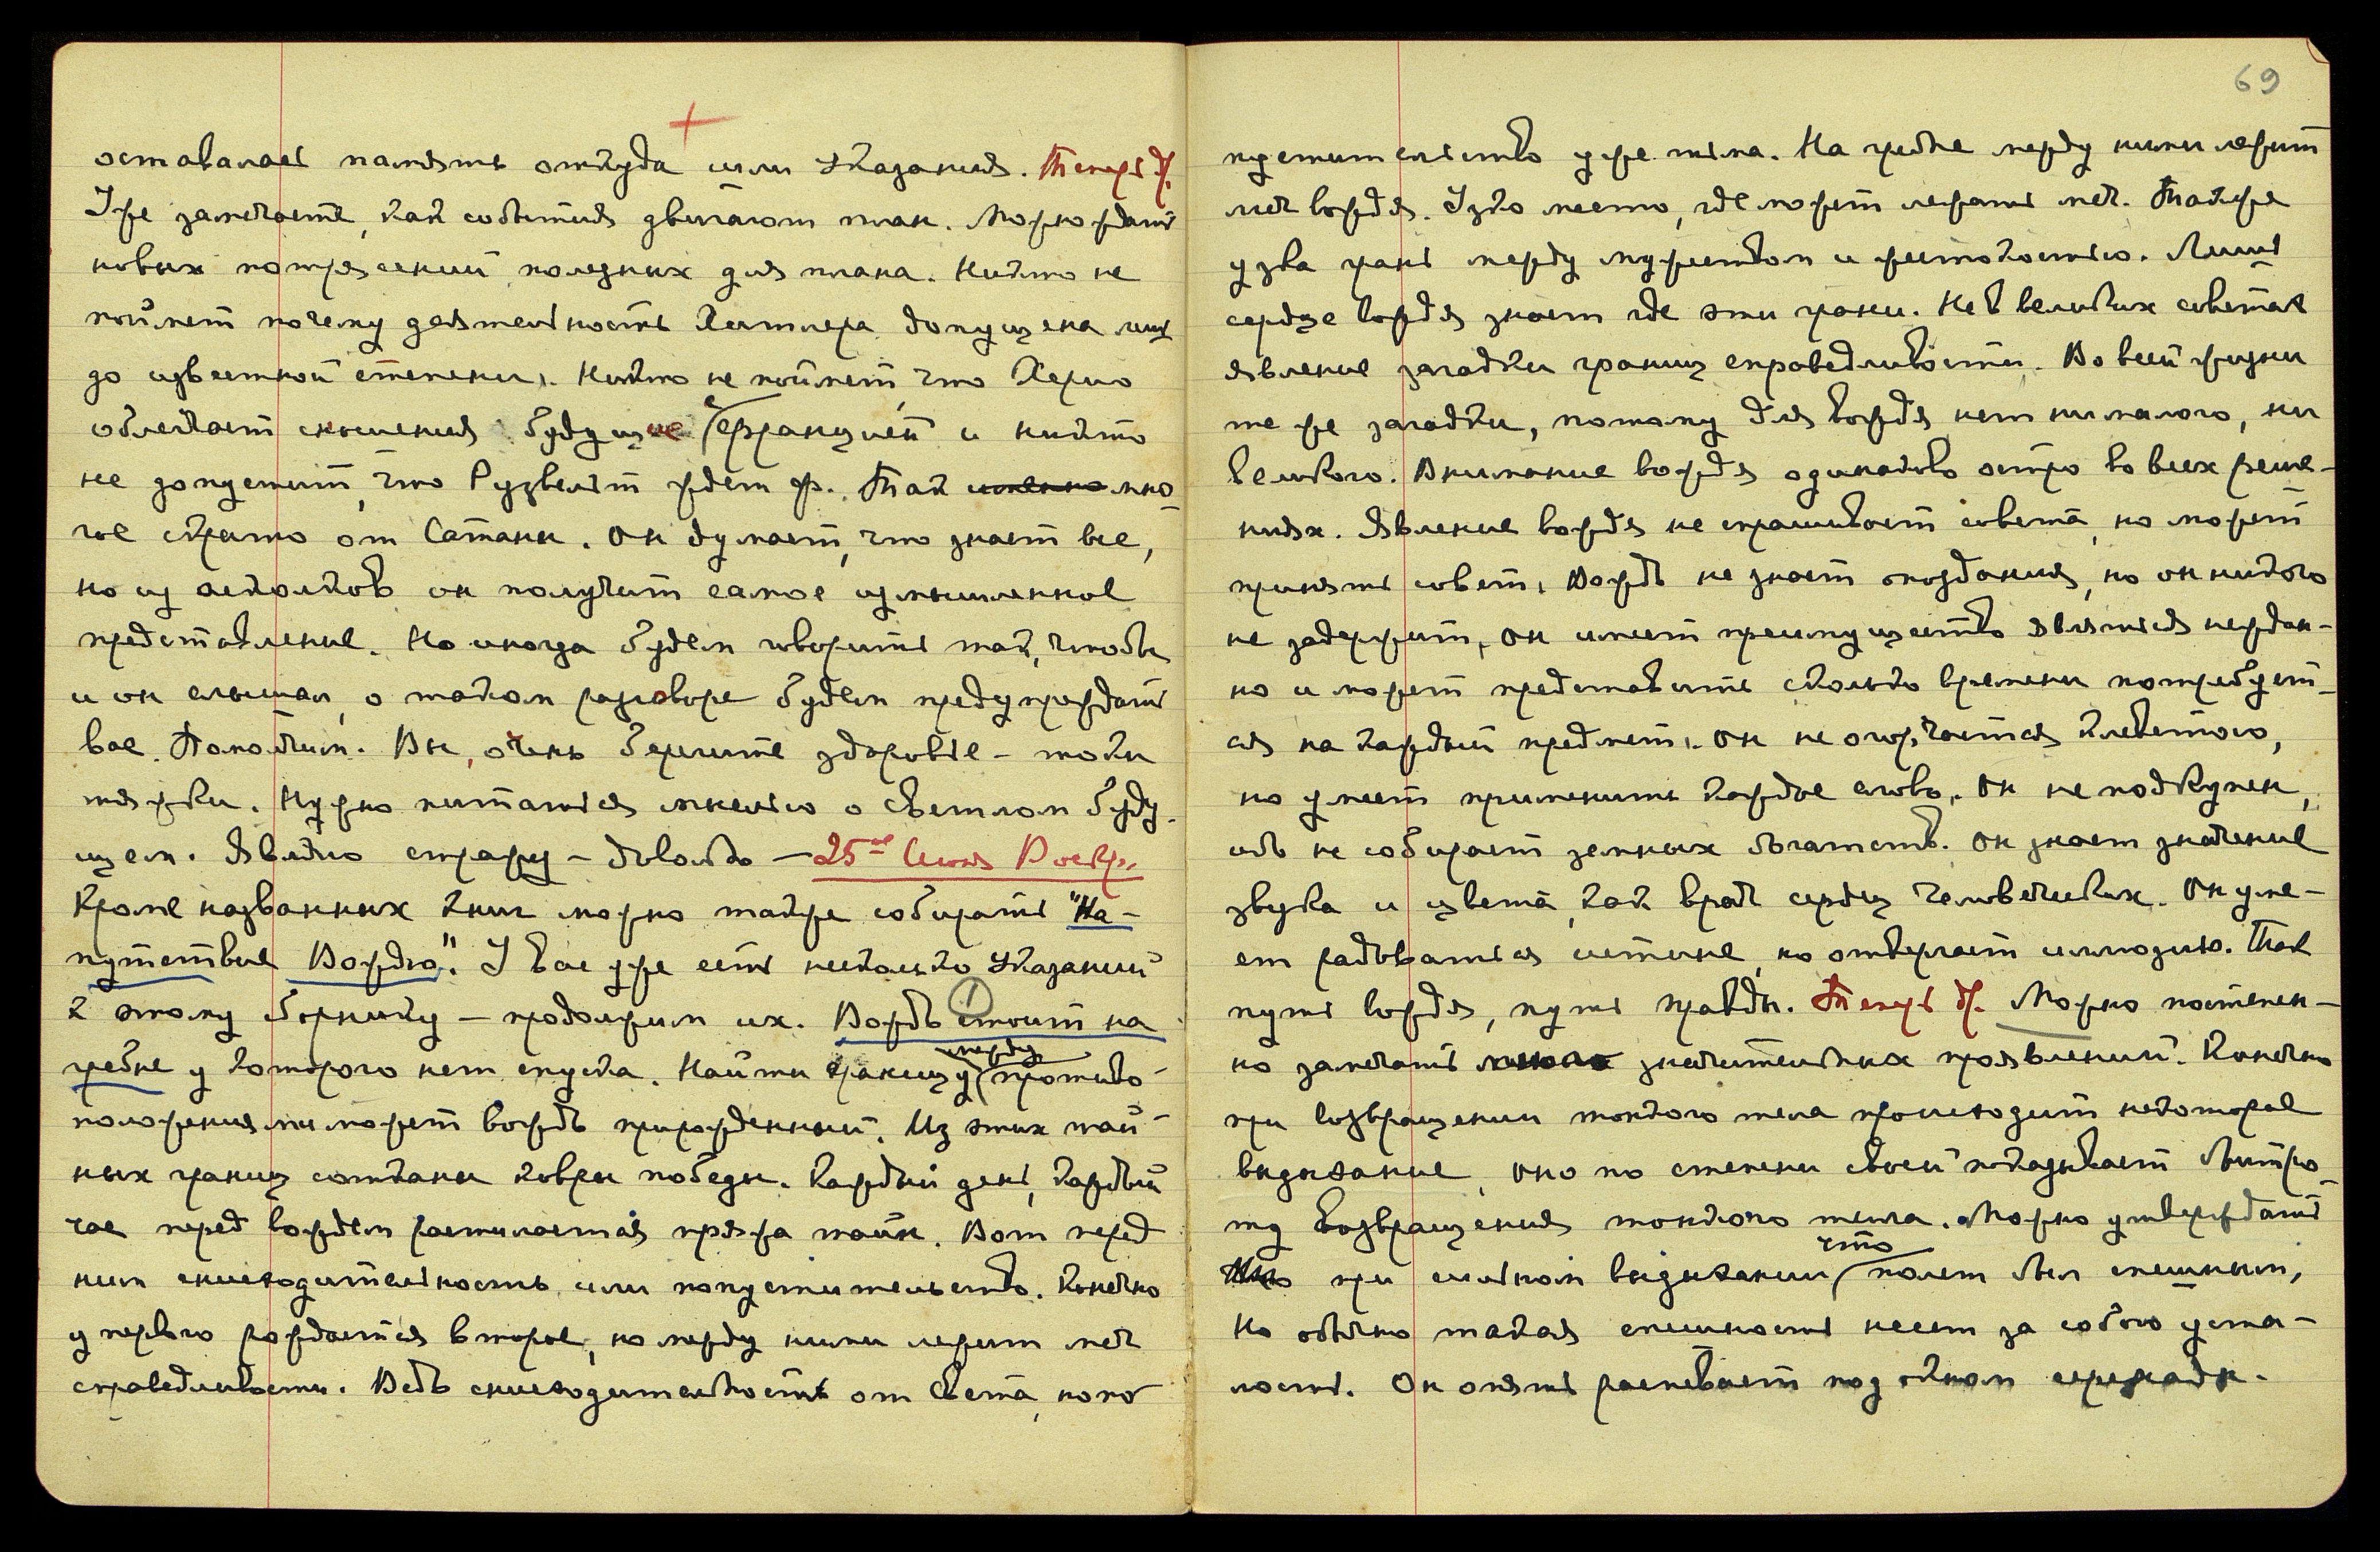 оставалась память откуда шли Указания. Теперь др.
Уже замечаете, как события двигают план. Можно ждать
новых потрясений, полезных для плана. Никто не
поймет почему деятельность Хитлера допущена лишь
до известной степени. Никто не поймет, что Херио
облегчает сношения с будущей Францией и никто
не допустит, что Рузвельт ждет Ф. Так мно-
гое скрыто от Сатаны. Он думает, что знает все,
но из осколков он получит самое измышленное
представление. Но иногда будем говорить так, чтобы
и он слышал, о таком разговоре будем предупреждать
вас. Помолчим. Вы, очень берегите здоровье – токи
тяжки. Нужно питаться мыслью о светлом буду-
щем. Являю стражу – довольно – 25ое Июня Воскр.
Кроме названных книг можно также собирать "На-
путствие Вождю". У вас уже есть несколько Указаний
к этому сборнику – продолжим их. Вождь стоит на
1
гребне у которого нет спуска. Найти границу между противо-
положениями может вождь прирожденный. Из этих тай-
ных границ сотканы ковры победы. Каждый день, каждый
час перед вождем расстилается пряжа тайн. Вот перед
ним снисходительность или попустительство. Конечно
у первого рождается второе, но между ними лежит меч
справедливости. Ведь снисходительность от Света, но по-
69
пустительство уже тьма. На гребне между ними лежит
меч вождя. Узко место, где может лежать меч. Также
узка грань между мужеством и жестокостью. Лишь
сердце вождя знает где эти грани. Не в великих советах
явление загадки границ справедливости. Во всей жизни
те же загадки, потому для вождя нет ни малого, ни
великого. Внимание вождя одинаково остро во всех реше-
ниях. Явление вождя не спрашивает совета, но может
принять совет. Вождь не знает опоздания, но он никого
не задержит, он имеет преимущество являться неждан-
но и может представить сколько времени потребует-
ся на каждый предмет. Он не огорчается клеветою,
но умеет применить каждое слово. Он не подкупен,
ибо не собирает земных богатств. Он знает значение
звука и цвета, как врач сердец человеческих. Он уме-
ет радоваться истине, но отвергает иллюзию. Так
путь вождя, путь правды. Теперь др. Можно постепен-
но замечать много значительных проявлений. Конечно
при возвращении тонкого тела происходит некоторое
вздрагивание, оно по степени своей показывает быстро-
ту возвращения тонкого тела. Можно утверждать
при сильном вздрагивании, что полет был спешным,
Но обычно такая спешность несет за собою уста-
лость. Он опять распевает под окном серенады.